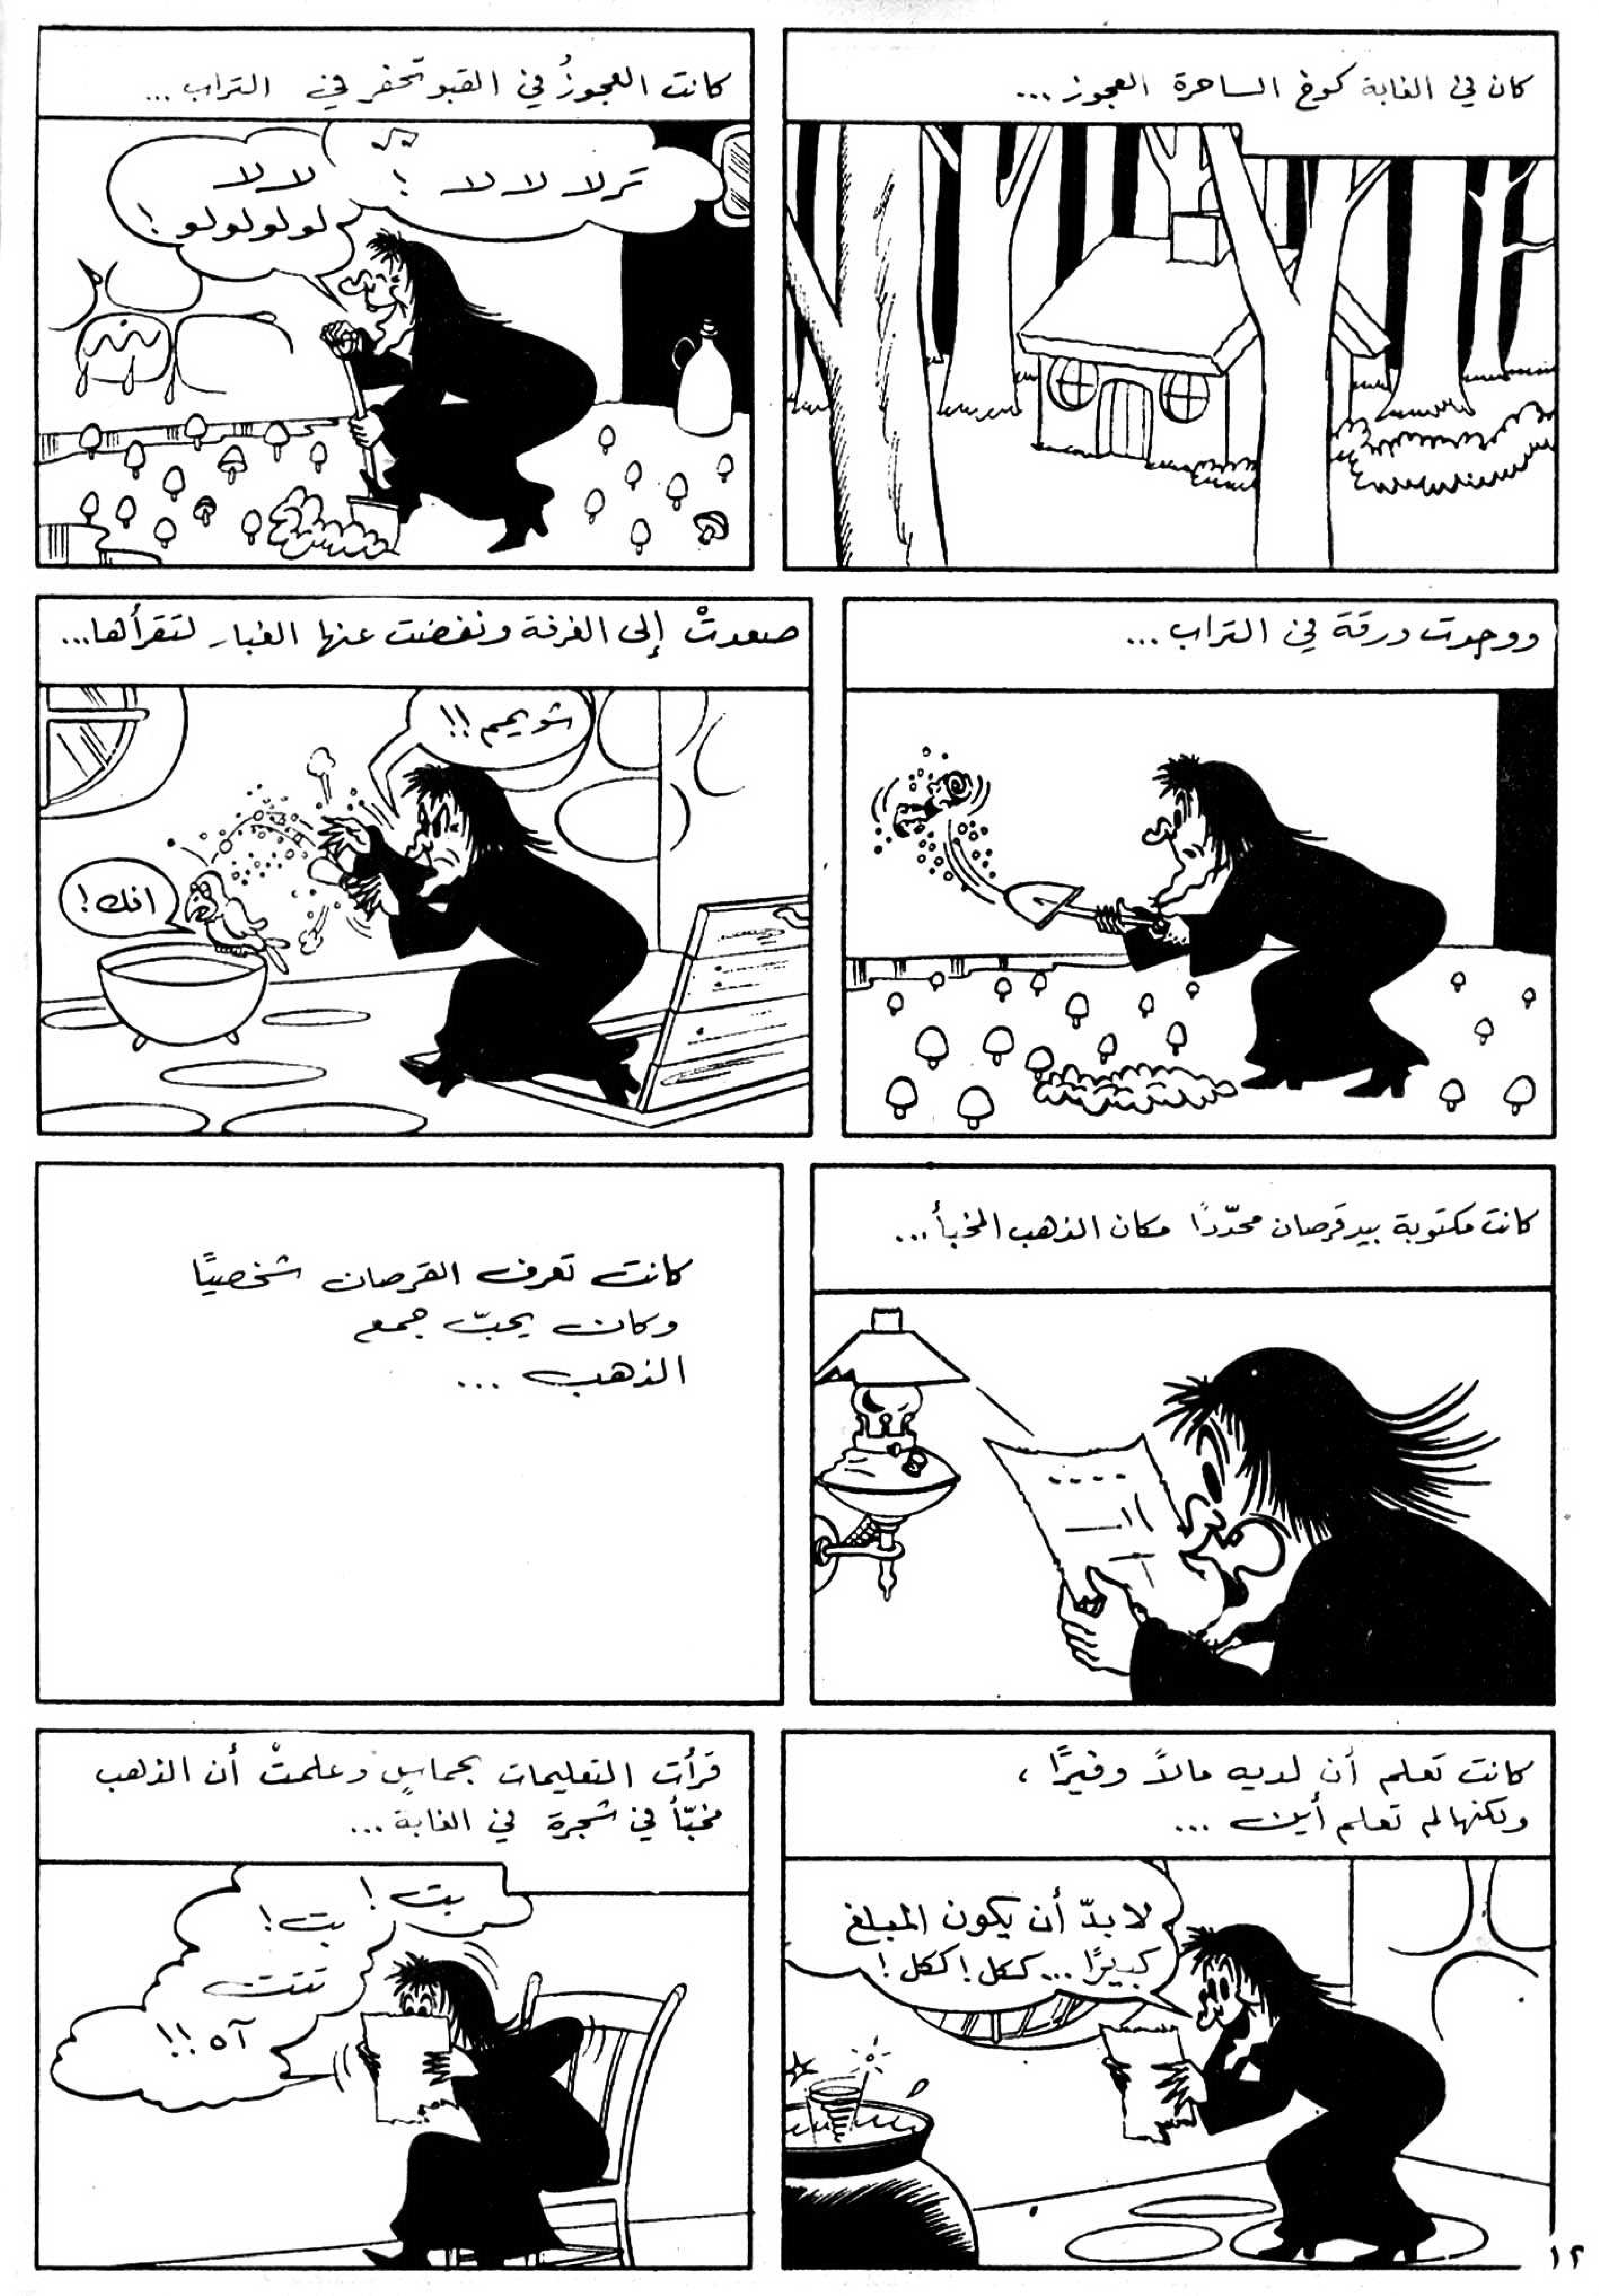 كان في الغابة كوخ الساحرة العجوز...
كانت العجوزُ في القبو تحفر في التراب...
ترلا لا لا !
لا لا
لولولولو !
ووجدت ورقة في التراب...
صعدتْ إلى الغرفة ونفضت عنها الغبار لتقرأها...
شويمم !!
انك !
كانت مكتوبة بيد قرصان محدّدًا مكان الذهب المخبأ...
كانت تعرف القرصان شخصيًا
وكان يحبّ جمع
الذهب ...
كانت تعلم أن لديه مالاً وفيرًا ،
ولكنها لم تعلم أين ...
لا بدّ أن يكون المبلغ
كبيرًا... ككل ! ككل !
قرأت التعليمات بحماسٍ وعلمتْ أن الذهب
مخبّأ في شجرة في الغابة ...
بت !
بت !
تتت
آه !!
١٢